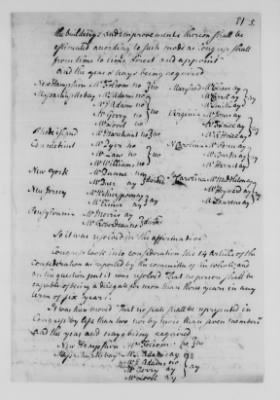 71 5
the buildings and improvements thereon shall be
estimated according to such mode as Congress shall
from time to time direct and appoint
And the yeas & nays being required
New hampshire Mr Folsom no } no Maryland Mr
Massachusetts bay Mr S Adams no
Mr J Adams no
Mr Gerry no
Mr Lovell no
Virginia Mr
Rhode island Mr Marchant no
Connecticut Mr Dyer no N Carolina Mr Penn ay
Mr Law no
Mr Williams no
New York Mr Duane no
Mr Duer ay S Carolina Mr Middleton
Mr Heyward ay
New Jersey Mr Witherspoon ay
Mr Elmer ay Mr Laurens ay
Pennsylvania Mr Morris ay
Mr Roberdeau no
So it was resolved in the affirmative
Congress took into consideration the 14 Article of the
Confederation as reported by the committee of the whole, and
on the question put it was resolved That no person shall be
capable of being a delegate for more than three years in any
term of six years.
It was then moved That no state shall be represented in
Congress by less than two nor by more than seven members
And the yeas and nays being required
New Hampshire Mr Folsom no } no
Massachusetts bay Mr S Adams ay
Mr J Adams no
Mr Gerry ay
Mr Lovell ay